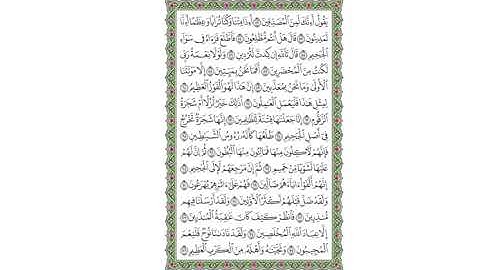 يَقُولُ أَءِنَّكَ لَمِنَ ٱلْمُصَدِّقِينَ ۝ أَءِذَا مِتْنَا وَكُنَّا تُرَابًا وَعِظَٰمًا أَءِنَّا
لَمَدِينُونَ ۝ قَالَ هَلْ أَنتُم مُّطَّلِعُونَ ۝ فَٱطَّلَعَ فَرَءَاهُ فِي سَوَآءِ
ٱلْجَحِيمِ ۝ قَالَ تَٱللَّهِ إِن كِدتَّ لَتُرْدِينِ ۝ وَلَوْلَا نِعْمَةُ رَبِّي
لَكُنتُ مِنَ ٱلْمُحْضَرِينَ ۝ أَفَمَا نَحْنُ بِمَيِّتِينَ ۝ إِلَّا مَوْتَتَنَا
ٱلْأُولَىٰ وَمَا نَحْنُ بِمُعَذَّبِينَ ۝ إِنَّ هَٰذَا لَهُوَ ٱلْفَوْزُ ٱلْعَظِيمُ ۝
لِمِثْلِ هَٰذَا فَلْيَعْمَلِ ٱلْعَٰمِلُونَ ۝ أَذَٰلِكَ خَيْرٌ نُّزُلًا أَمْ شَجَرَةُ
ٱلزَّقُّومِ ۝ إِنَّا جَعَلْنَٰهَا فِتْنَةً لِّلظَّٰلِمِينَ ۝ إِنَّهَا شَجَرَةٌ تَخْرُجُ
فِيٓ أَصْلِ ٱلْجَحِيمِ ۝ طَلْعُهَا كَأَنَّهُۥ رُءُوسُ ٱلشَّيَٰطِينِ ۝
فَإِنَّهُمْ لَأٓكِلُونَ مِنْهَا فَمَالِـُٔونَ مِنْهَا ٱلْبُطُونَ ۝ ثُمَّ إِنَّ لَهُمْ
عَلَيْهَا لَشَوْبًا مِّنْ حَمِيمٍ ۝ ثُمَّ إِنَّ مَرْجِعَهُمْ لَإِلَى ٱلْجَحِيمِ ۝
إِنَّهُمْ أَلْفَوْا۟ ءَابَآءَهُمْ ضَآلِّينَ ۝ فَهُمْ عَلَىٰٓ ءَاثَٰرِهِمْ يُهْرَعُونَ ۝
وَلَقَدْ ضَلَّ قَبْلَهُمْ أَكْثَرُ ٱلْأَوَّلِينَ ۝ وَلَقَدْ أَرْسَلْنَا فِيهِم
مُّنذِرِينَ ۝ فَٱنظُرْ كَيْفَ كَانَ عَٰقِبَةُ ٱلْمُنذَرِينَ ۝
إِلَّا عِبَادَ ٱللَّهِ ٱلْمُخْلَصِينَ ۝ وَلَقَدْ نَادَىٰنَا نُوحٌ فَلَنِعْمَ
ٱلْمُجِيبُونَ ۝ وَنَجَّيْنَٰهُ وَأَهْلَهُۥ مِنَ ٱلْكَرْبِ ٱلْعَظِيمِ ۝